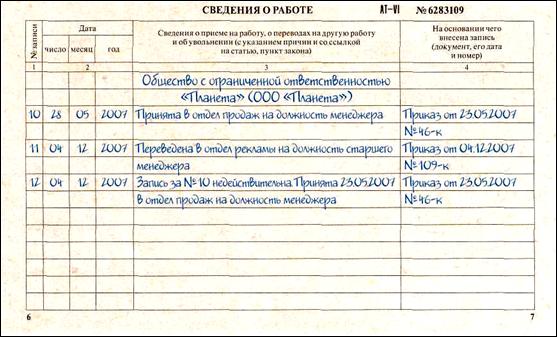 СВЕДЕНИЯ О РАБОТЕ АТ-VI № 6283109
№ записи Дата Сведения о приеме на работу, о переводах на другую работу и об увольнении (с указанием причин и со ссылкой на статью, пункт закона) На основании чего внесена запись (документ, его дата и номер)
число месяц год
1 2 3 4
Общество с ограниченной ответственностью
«Планета» (ООО «Планета»)
10 28 05 2007 Принята в отдел продаж на должность менеджера Приказ от 23.05.2007
№46-к
11 04 12 2007 Переведена в отдел рекламы на должность старшего Приказ от 04.12.2007
менеджера №109-к
12 04 12 2007 Запись за №10 недействительна. Принята 23.05.2007 Приказ от 23.05.2007
в отдел продаж на должность менеджера №46-к
6 7